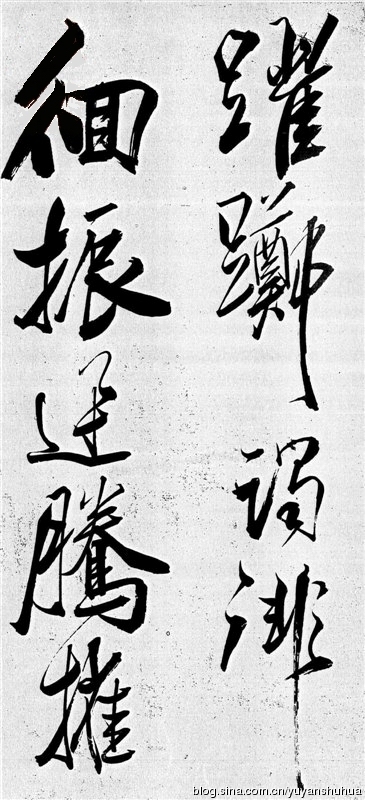 躍躑徘
徊振迅騰摧
blog.sina.com.cn/yuyanshuhua